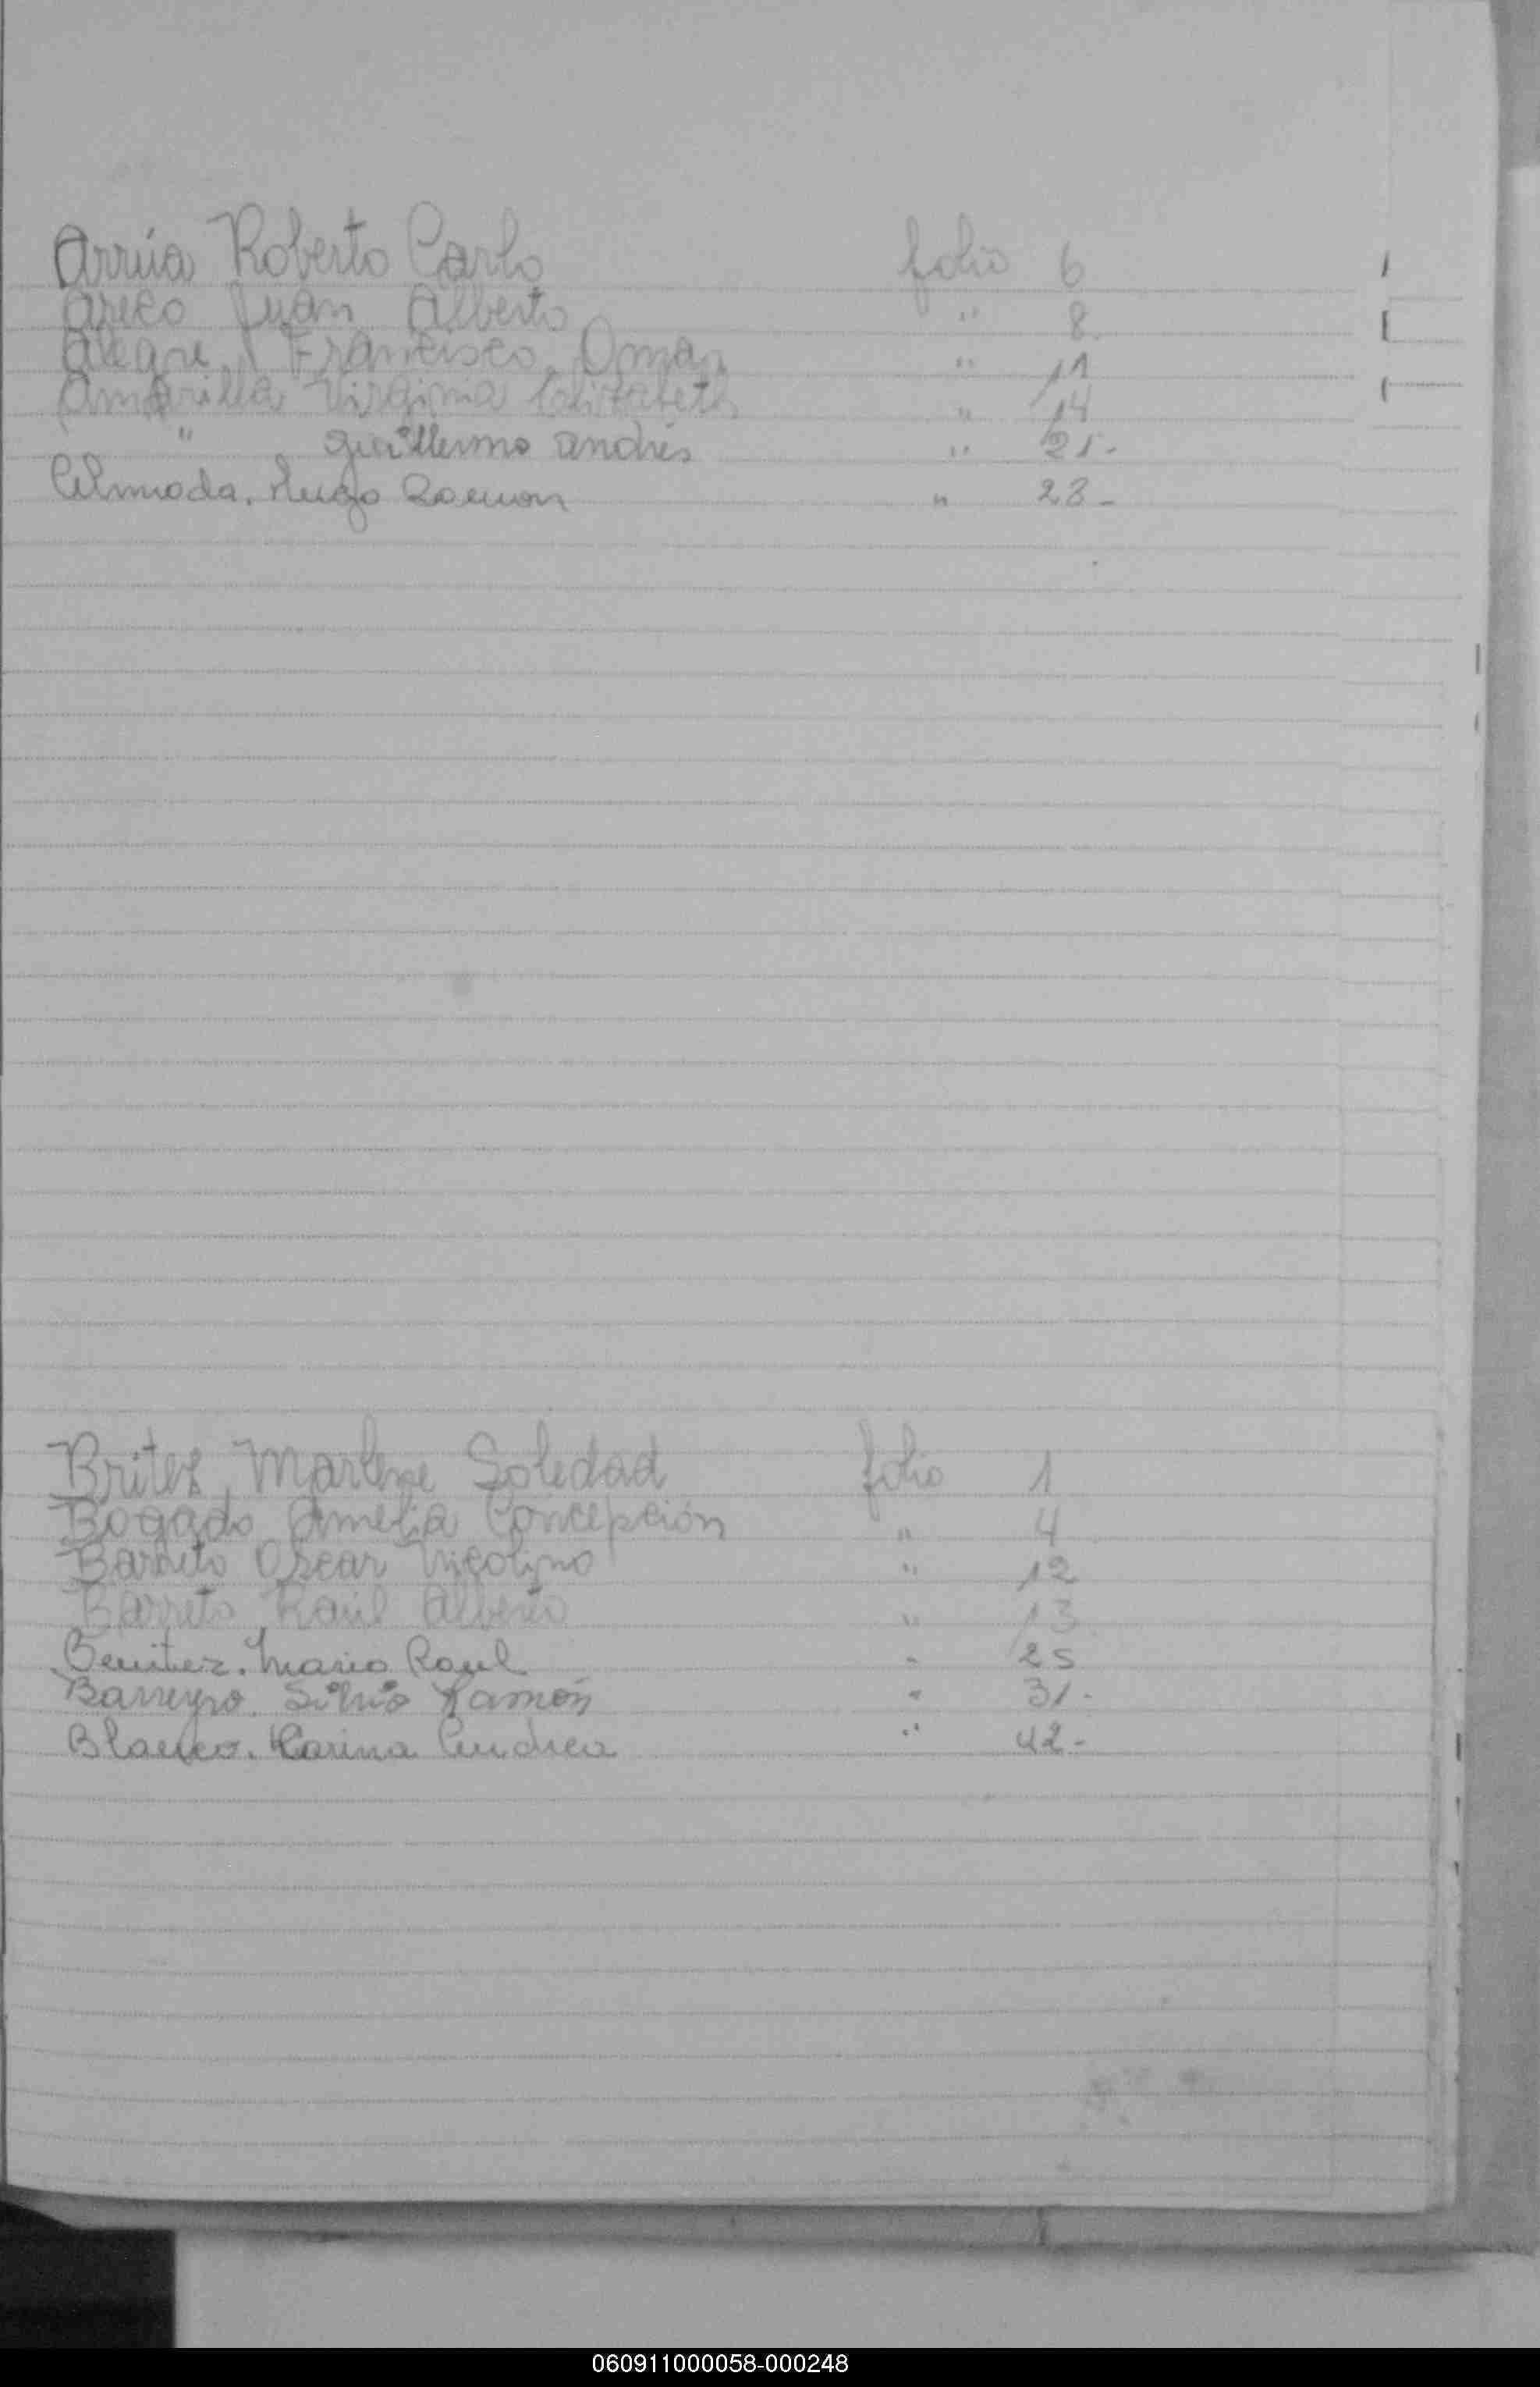 Arrúa Roberto Carlo folio 6
Areco Juan Alberto " 8
Alegre, Francisco Omar " 11
Amarilla Virginia Elizabeth " 14
" Guillermo Andrés " 21.-
Almada. Hugo Ramon " 23-
Britez, Marlene Soledad folio 1
Bogado Amelia Concepción " 4
Barreto Oscar Nicolino " 12
Barreto Raúl Alberto " 13
Benitez. Mario Raul " 25
Barreyro. Silvio Ramón " 31.-
Blanco. Karina Andrea " 42.-
060911000058-000248